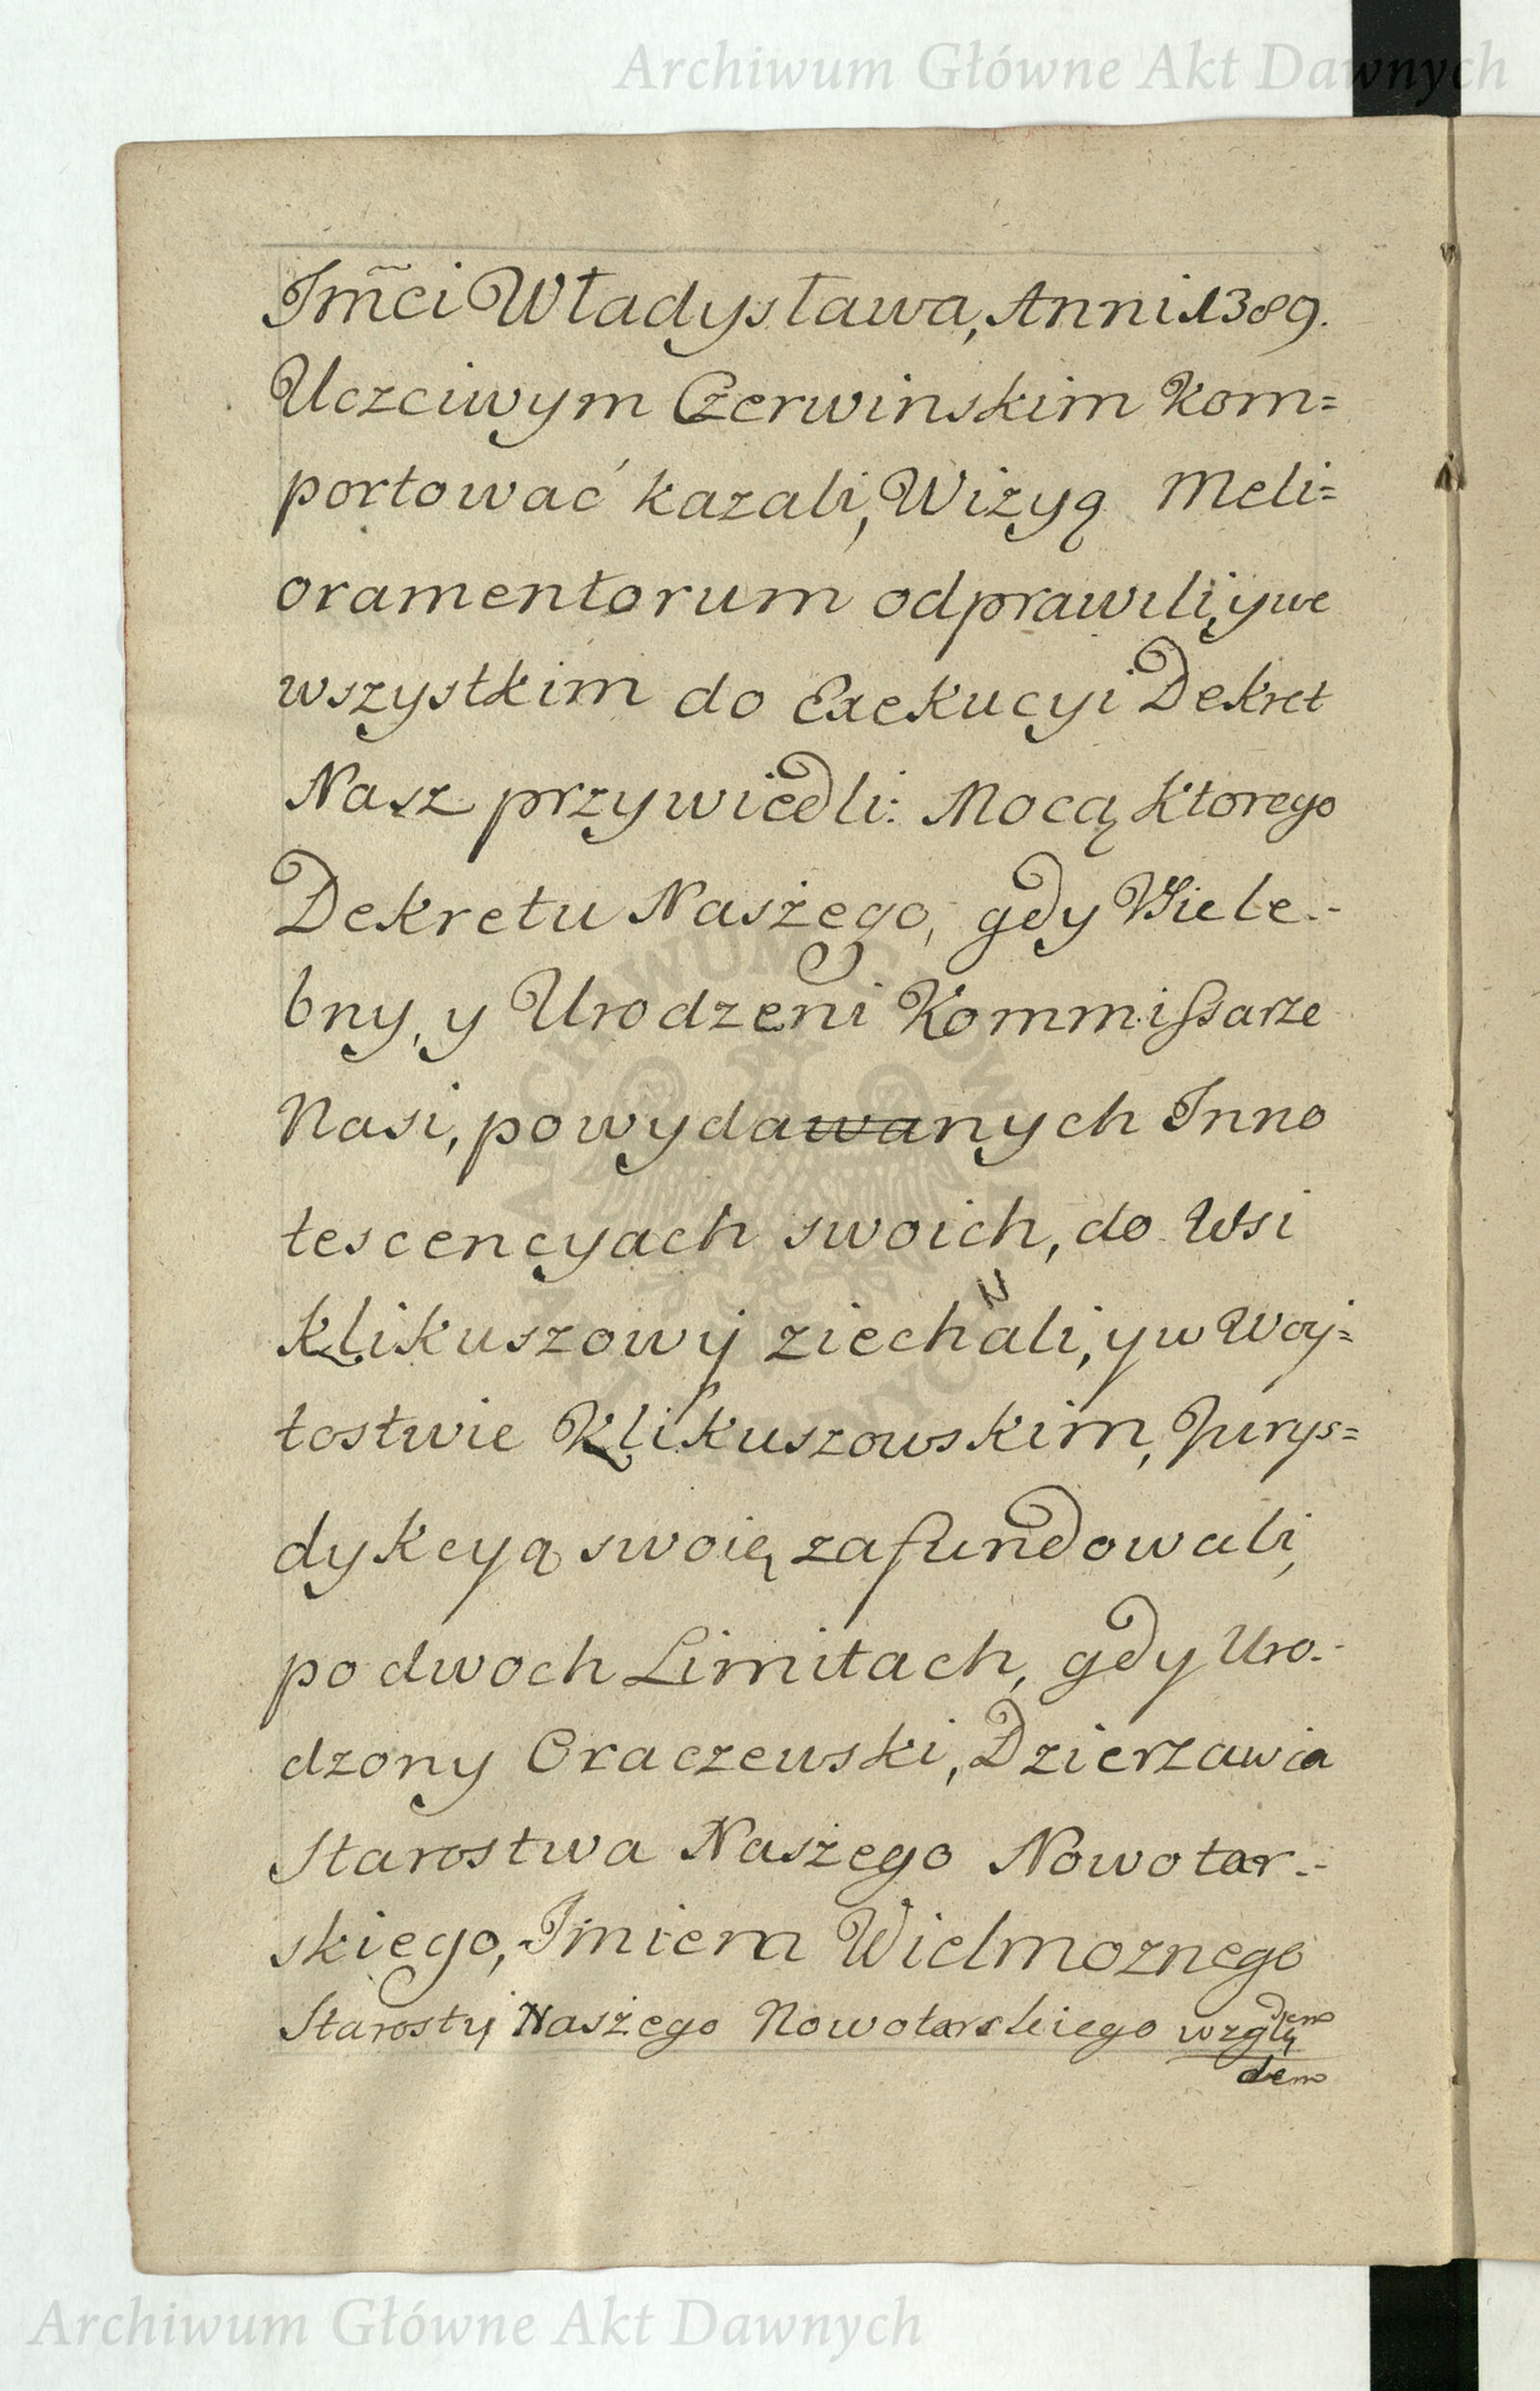 Archiwum Główne Akt Dawnych
Jm̃ci Władysława, Anni 1389.
Uczciwym Czerwinskim Kom=
portować kazali, Wizyą Meli=
oramentorum odprawili, y we
wszystkim do Exekucyi Dekret
Nasz przywiedli: Mocą ktorego
Dekretu Naszego, gdy Wiele-
bny, y Urodzeni Kommissarze
Nasi, po wydawanych Inno
tescencyach swoich, do Wsi
Klikuszowy ziechali, y w Woy=
tostwie Klikuszowskim, Jurys=
dykcyą swoię zafundowali,
po dwoch Limitach, gdy Uro-
dzony Oraczewski, Dzierzawca
Starostwa Naszego Nowotar-
skiego, Imieniem Wielmoznego
Starosty Naszego Nowotarskiego wzglę
dem
dem
Archiwum Główne Akt Dawnych